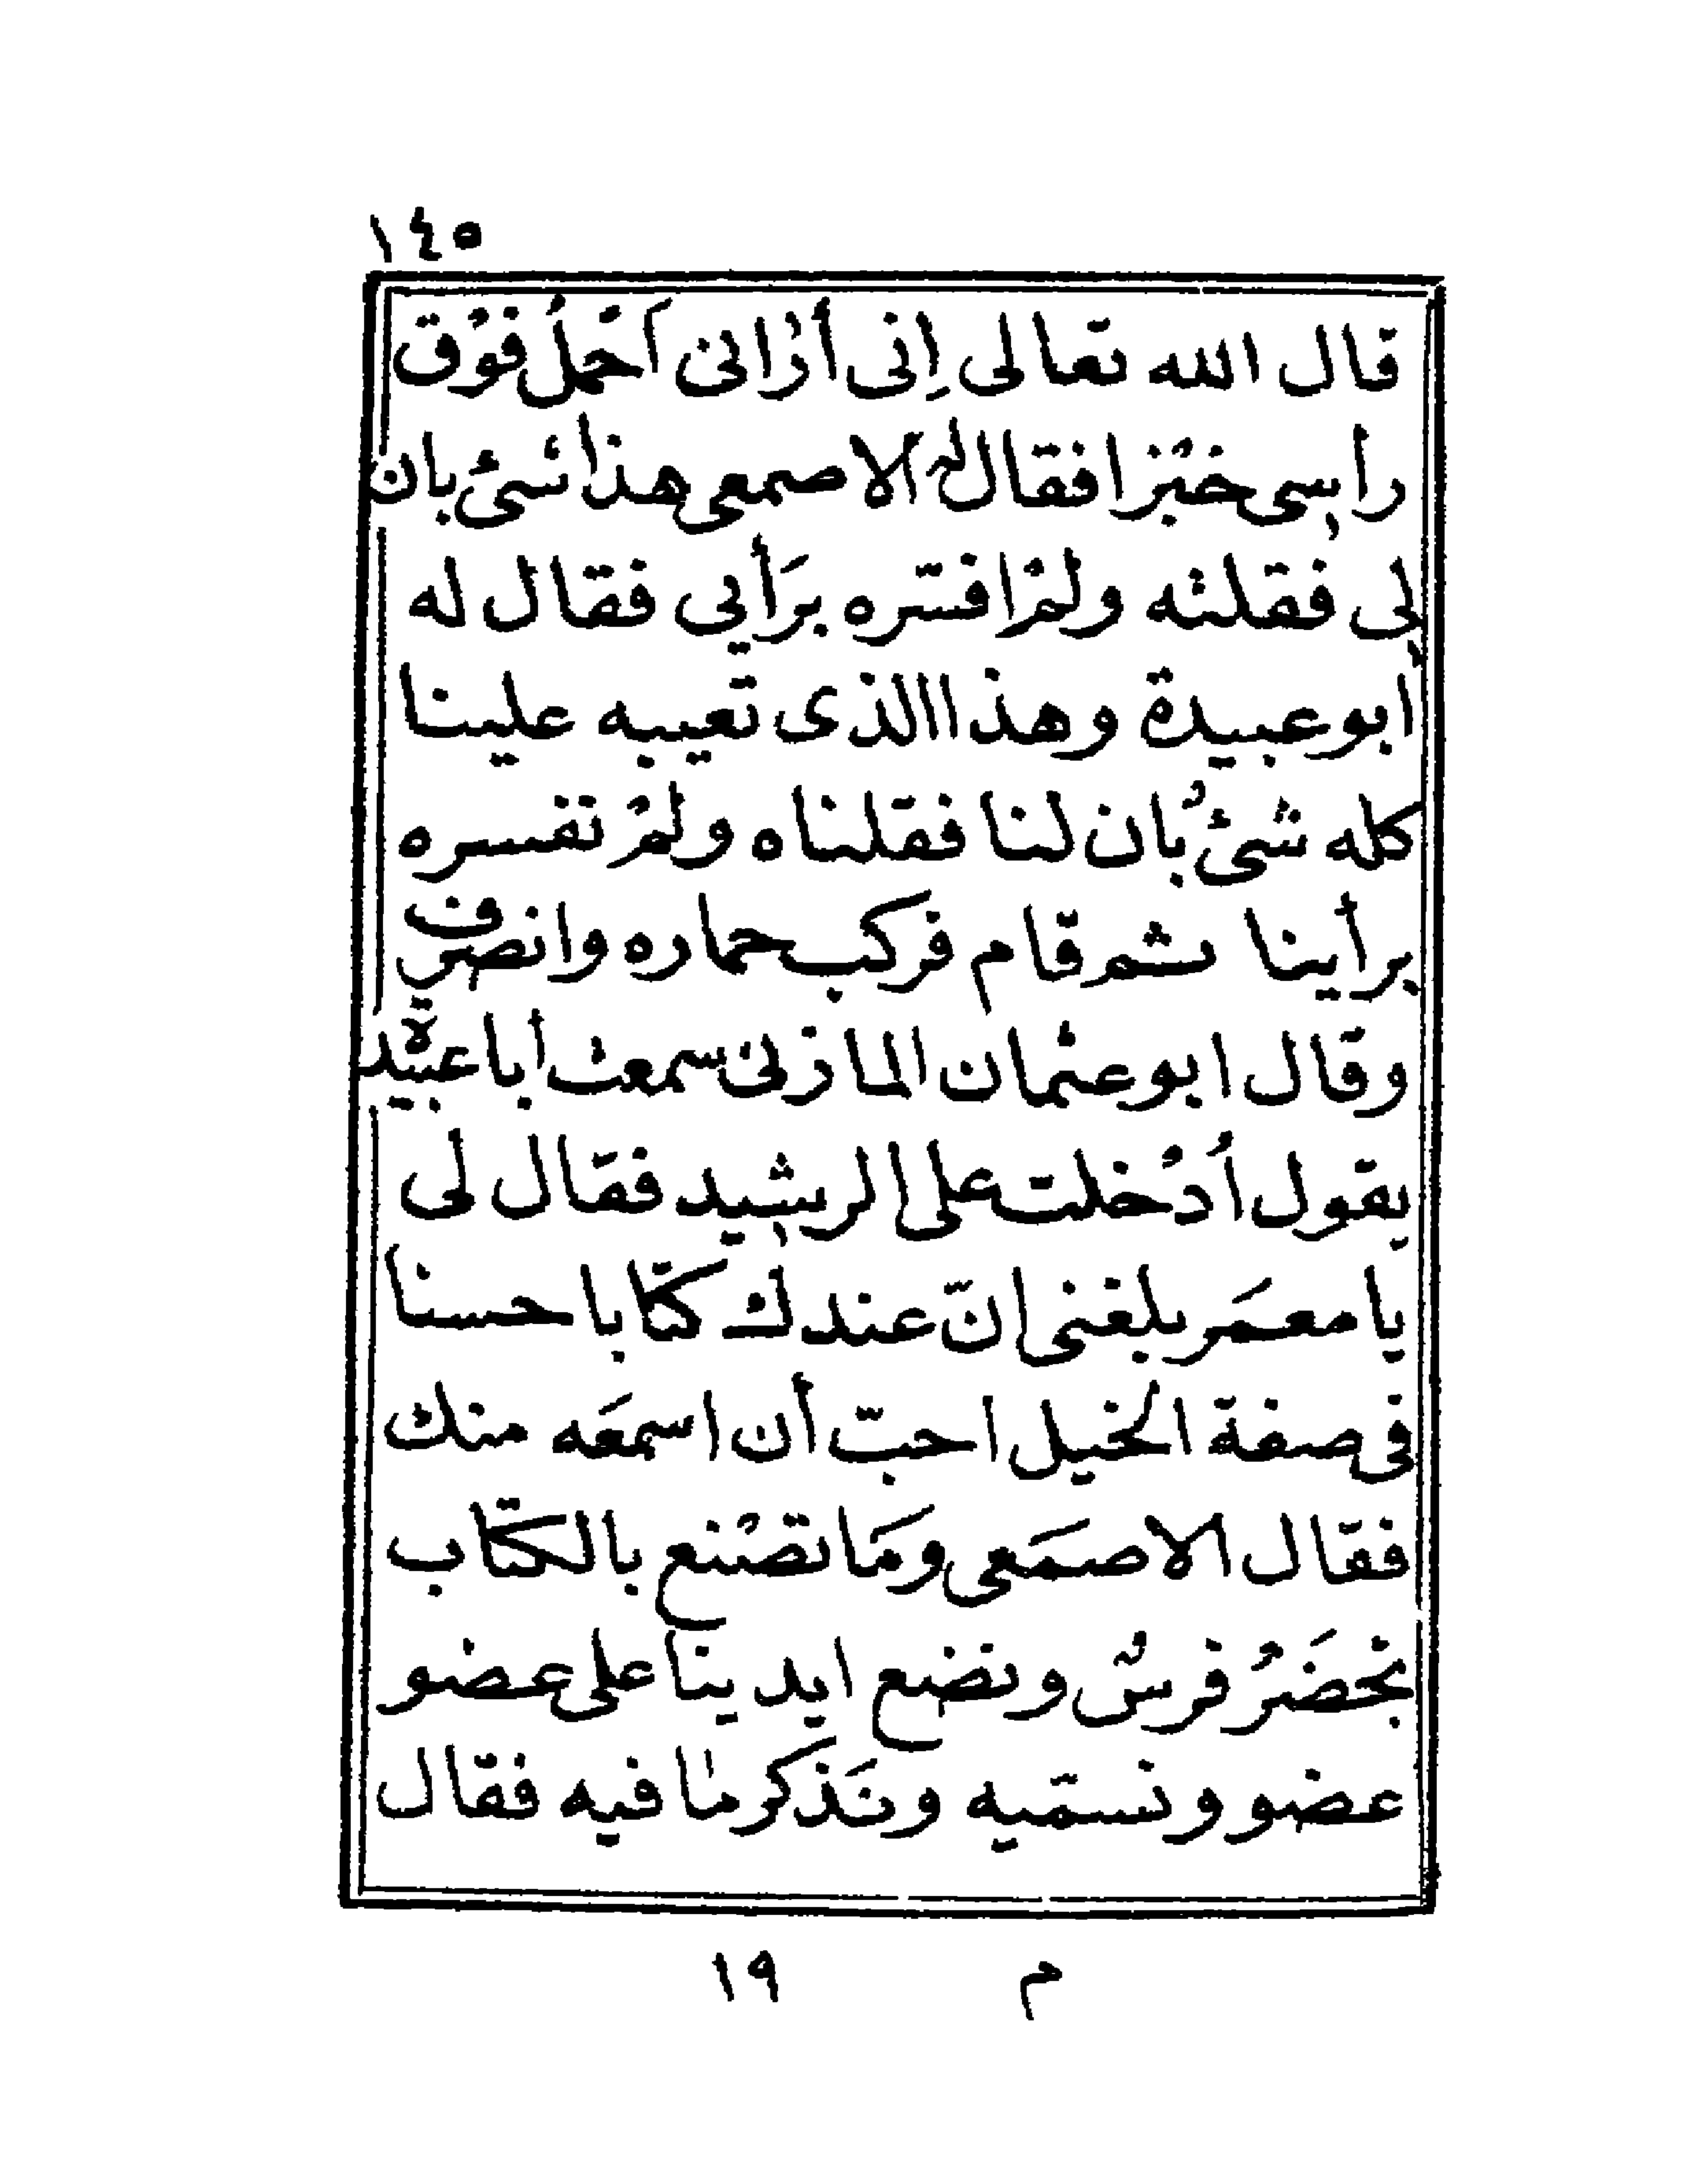 ١٤٥
قال الله تعالى اِنى أرٰانى اَحْملُ فوْق
رأسِى خبْزا فقال لهُ الاصمعى هذا شىءْ بان
لى فقلته ولمْ افسّره برَأيى فقال له
أبو عبيدة وهذا االذى تعيبه علينا
كله شىءٌ بان لنا فقلناه ولمْ نفسره
برأينا ثم قام فركب حماره وانصرف
وقال ابو عثمان المازنى سمعت أبا عبيدة
يقول اُدْخلت على الرشيد فقال لى
يا معمَر بلغنى انّ عندك كتابا حسنا
فى صفة الخيل احبّ أن اسمعَه منك
فقال الاصمَعى ومَا تصْنع بالكتاب
نحْضَرُ فرسٌ ونضع ايدينا على عضو
عضو ونسمّيه ونَذكر مٰا فيه فقال
م ١٩